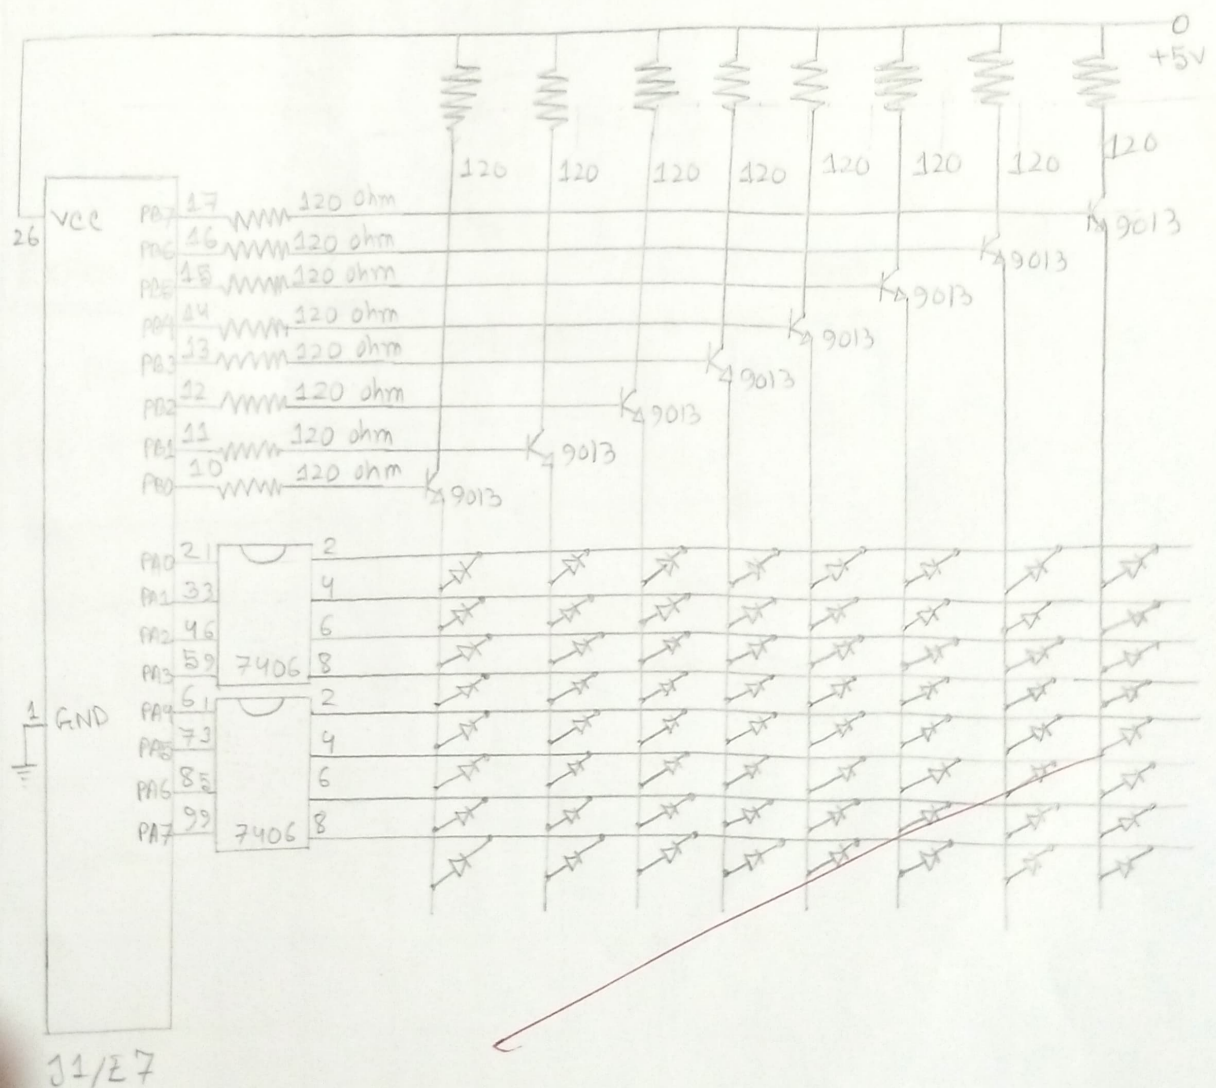 0
+5V
120 120 120 120 120 120 120 120
26 VCC PB7 17 120 ohm 9013
PB6 16 120 ohm 9013
PB5 15 120 ohm 9013
PB4 14 120 ohm 9013
PB3 13 120 ohm 9013
PB2 12 120 ohm 9013
PB1 11 120 ohm 9013
PB0 10 120 ohm 9013
PA0 2 1 2
PA1 3 3 4
PA2 4 6 6
PA3 5 9 7406 8
1 GND PA4 6 1 2
PA5 7 3 4
PA6 8 5 6
PA7 9 9 7406 8
J1/E7